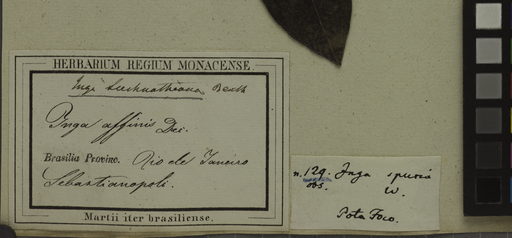 HERBARIUM REGIUM MONACENSE.
Inga Benth
Inga affinis Dec.
Brasilia Provinc. Rio de Janeiro
Sebastianopoli.
Martii iter brasiliense.
n. 129. Inga spuria
obs. W.
Pota Foco.